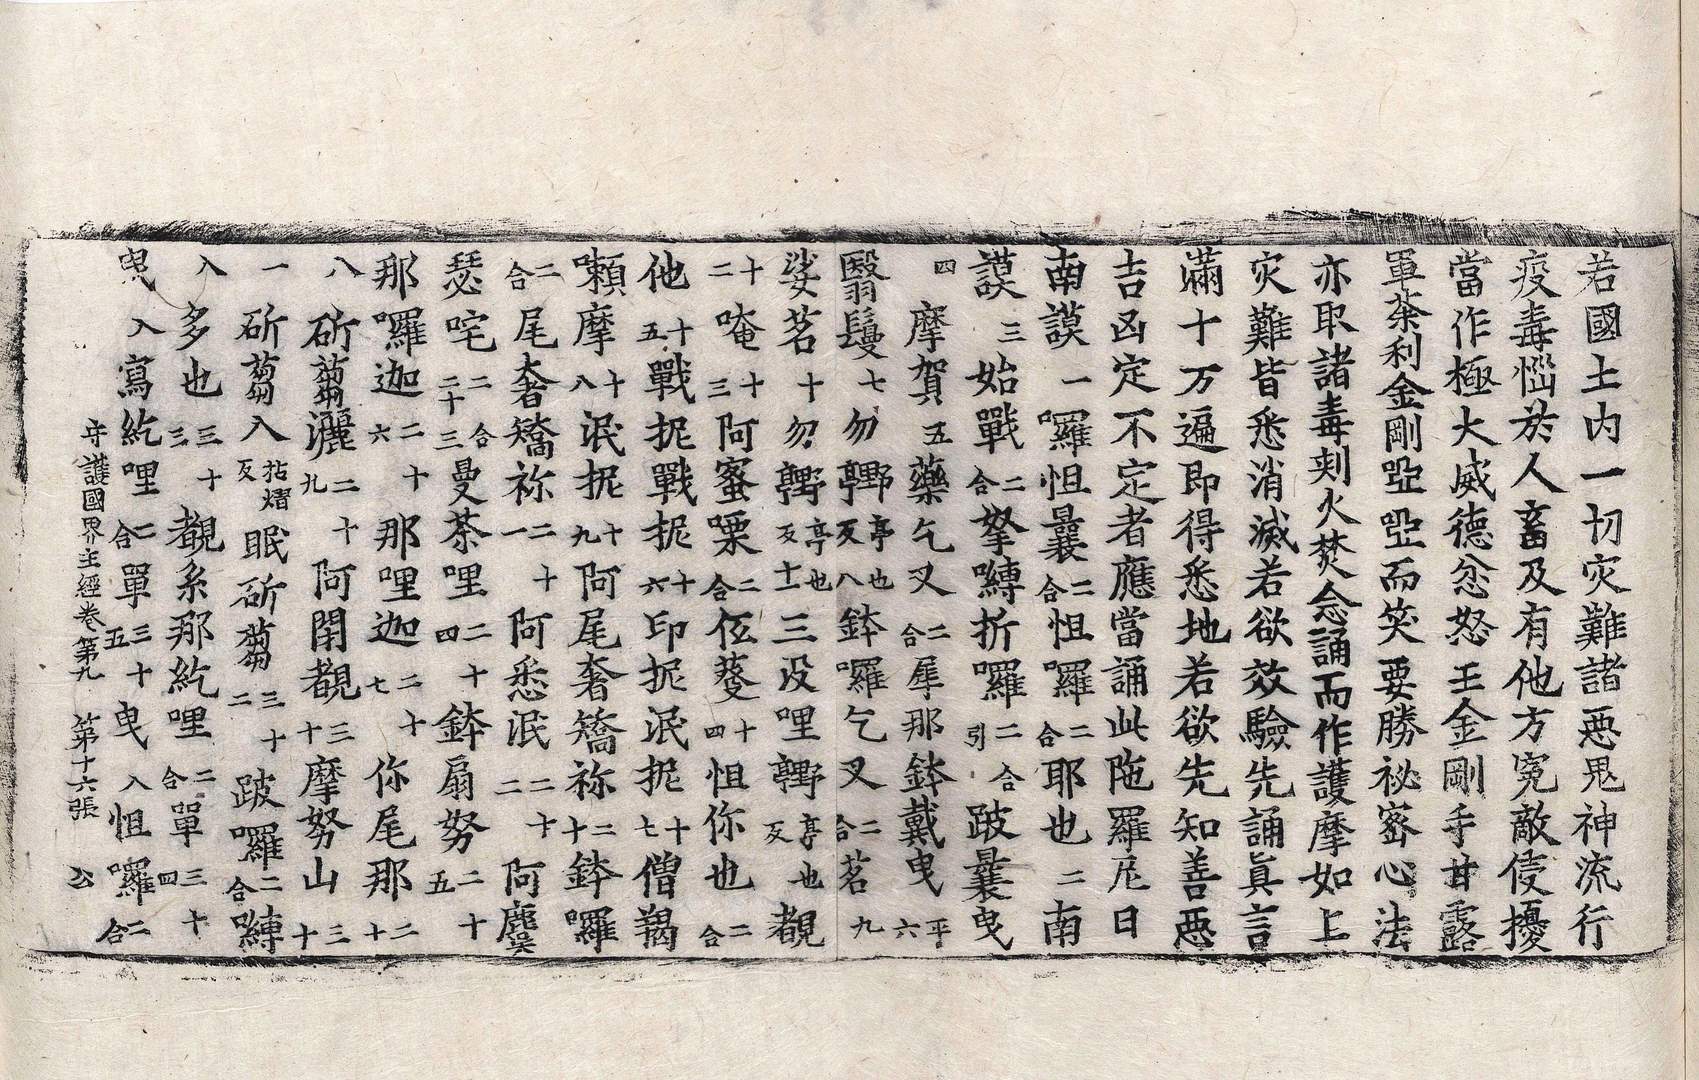 若國土內一切灾難諸惡鬼神流行
疫毒惱於人畜及有他方寃敵侵擾
當作極大威德忿怒王金剛手甘露
軍荼利金剛啞啞而笑要勝祕密心法
亦取諸毒刾火焚念誦而作護摩如上
灾難皆悉消滅若欲效驗先誦眞言
滿十万遍即得悉地若欲先知善惡
吉凶定不定者應當誦此陁羅尼曰
南謨一囉怛曩二合怛羅二合耶也二南
謨三始戰二合拏嚩折囉二合引跛曩曳
四摩賀五藥乞叉二合犀那鉢戴曳平六
翳鬘七勿𪏭亭也反八鉢囉乞叉二合茗九
娑茗十勿𪏭亭也反十一三没哩𪏭亭也反覩
十二唵十三阿蜜㗚二合伍蔓十四怛你也二合
他十五戰抳戰抳十六印抳泯抳十七僧羯
嚩摩十八泯抳十九阿尾奢矯祢二十鉢囉
二合尾奢矯祢二十一阿悉泯二十二阿
瑟咤二合二十三曼荼哩二十四鉢扇努二十五
那囉迦二十六那哩迦二十七你尾那二十
八斫蒭灑二十九阿閉覩三十摩努山三十
一斫蒭入拈熠反眠斫蒭三十二跛囉二合嚩
入多也三十三覩系那紇哩二合單三十四
曳入寫紇哩二合單三十五曳入怛囉二合
守護國界主經卷第九 第十六張